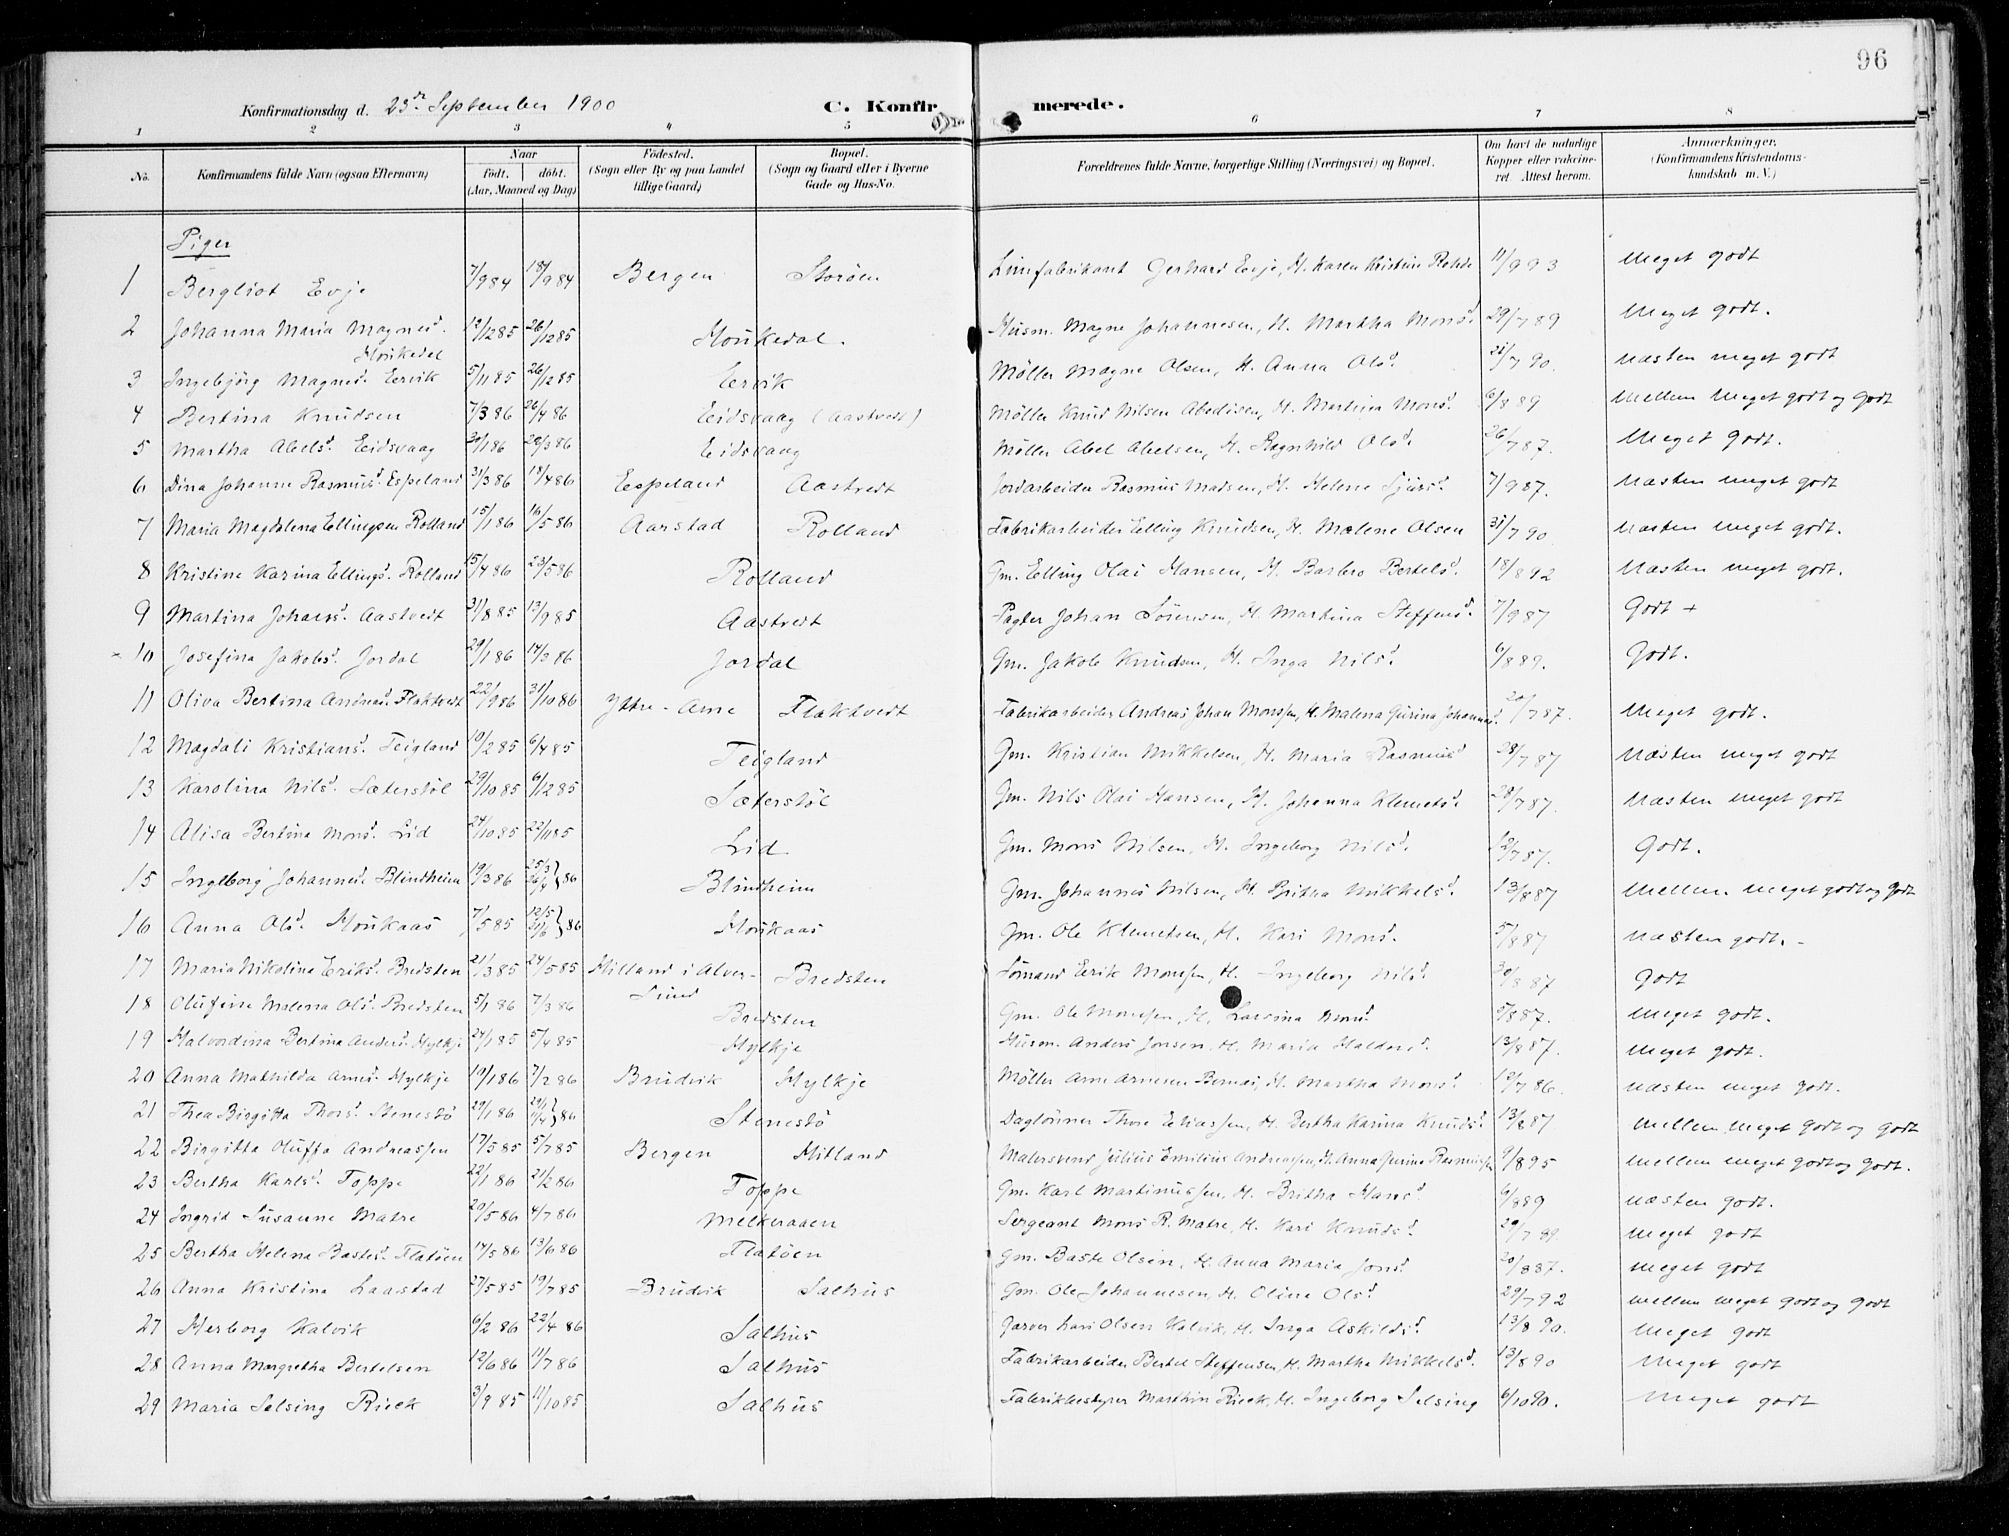 96
Konfirmationsdag d. 23de September 1900 C. Konfirmerede.
1 2 3 4 5 6 7 8
No. Konfirmandens fulde Navn (ogsaa Efternavn) Naar født. døbt. (Aar, Maaned og Dag) Fødested. (Sogn eller By og paa Landet tillige Gaard) Bopæl. (Sogn og Gaard eller i Byerne Gade og Hus-No. Forældrenes fulde Navne, borgerlige Stilling (Næringsvei) og Bopæl. Om havt de naturlige Kopper eller vakcineret. Attest herom. Anmærkninger. (Konfirmandens Kristendomskundskab m. V.)
Piger
1 Bergliot Evje 7/9 84 18/9 84 Bergen Storøen Limfabrikant Gerhard Evje, H. Karen Kristine Rohde 11/9 93 Meget godt
2 Johanna Maria Magnesd. Houkedal 12/12 85 26/12 85 Houkedal. Husm. Magne Johannesen, H. Martha Monsd. 29/7 89 Meget godt.
3 Ingebjörg Magnesd. Eervik 5/11 85 26/12 85 Eervik Møller Magne Olsen, H. Anna Olsd. /7 90. Næsten meget godt
4 Bertina Knudsen 7/3 86 26/4 86 Eidsvaag (Aastvedt) Møller Knud Nilsen, H. Martina Monsd. 6/8 89 Mellem meget godt og godt
5 Martha Abelsd. Eidsvaag 30/1 86 28/3 86 Eidsvaag Møller Abel Abelsen, H. Ragnhild Olsd. 26/7 87. Meget godt.
6 Dina Johanne Rasmusd. Espeland 31/3 86 18/4 86 Espeland Aastvedt Jordarbeider Rasmus Madsen, H. Helene Sjursd. 7/9 87. Næsten meget godt
7 Maria Magdalena Ellingsen Rolland 15/1 86 16/5 86 Aarstad Rolland Fabrikarbeider Elling Knudsen, H. Malene Olsen 31/7 90 Næsten meget godt.
8 Kristine Karina Ellingsd. Rolland 15/4 86 23/5 86 Rolland Gm. Elling Olai Hansen, H. Barbro Bertelsd. 18/8 92 Næsten meget godt.
9 Martina Johansd. Aastvedt 31/8 85 13/9 85 Aastvedt Pagter Johan Sörensen, H. Martina Steffensd. 7/9 87 Godt +
10 Josefina Jakobsd. Jordal 29/1 86 14/3 86 Jordal Gm. Jakob Knudsen, H. Inga Nilsd. 6/8 89. Godt.
11 Oliva Bertina Andreasd. Flaktvedt 22/9 86 31/10 86 Ytre-Arne Flaktvedt Fabrikarbeider Andreas Johan Monssen, H. Malena Gurina Johannesd. 20/7 87. Meget godt.
12 Magdali Kristiansd. Teigland 10/2 85 6/4 85 Teigland Gm. Kristian Mikkelsen, H. Maria Rasmusd 28/7 87 Næsten meget godt
13 Karolina Nilsd. Sæterstöl 29/10 85 6/12 85 Sæterstöl Gm. Nils Olai Hansen, H. Johanna Klemetsd. 28/7 87. Næsten meget godt
14 Alisa Bertina Monsd. Lid 24/10 85 22/11 85 Lid Gm. Mons Nilsen, H. Ingeborg Nilsd. 12/7 87. Godt.
15 Ingeborg Johannesd. Blindheim 19/3 86 25/3 26/4 } 86 Blindheim Gm. Johannes Nilsen, H. Britha Mikkelsd. 13/8 87 Mellem meget godt og godt
16 Anna Olsd. Houkaas 7/5 85 12/5 21/6 } 86 Houkaas Gm. Ole Klemetsen, H. Kari Monsd. 5/8 87 Næsten godt.
17 Maria Nikolina Eriksd. Bredsten 21/3 85 24/5 85 Hilland i Alversund Bredsten Sömand Erik Monssen, H. Ingeborg Nilsd. 30/8 87 Godt
18 Olufine Malena Olsd. Bredsten 5/1 86 7/3 86 Bredsten Gm. Ole Monssen, H. Larsina Monsd. 5/8 87. Meget godt.
19 Halvordina Bertina Andersd. Hylkje 24/1 85 5/4 85 Hylkje Husm. Anders Jonsen, H. Maria Haldorsd. 13/8 87. Meget godt.
20 Anna Mathilda Arnesd. Hylkje 19/1 86 7/2 86 Brudvik Hylkje Møller Arne Arnesen, H. Martha Monsd. 12/7 86. Næsten meget godt.
21 Thea Birgitta Thorsd. Stenestö 29/1 86 29/1 11/4 } 86 Stenestö Daglönner Thore Eliassen, H. Bertha Karina Knudsd. 13/8 87. Mellem meget godt og godt
22 Birgitta Oluffa Andreassen 17/5 85 5/7 85 Bergen Hilland Malersvend Julius Emilius Andreassen, H. Anna Gurina Rasmussen 9/8 95 Mellem meget godt og godt.
23 Bertha Karlsd. Toppe 22/1 86 21/2 86 Toppe Gm. Karl Martinussen, H. Britha Hansd. 6/8 89 Næsten godt.
24 Ingrid Susanne Matre 20/5 86 4/7 86 Melkeraaen Sergeant Mons R. Matre, H. Kari Knudsd. 29/7 89. Meget godt
25 Bertha Helena Bastesd. Flatöen 14/5 86 13/6 86 Flatöen Gm. Baste Olsen, H. Anna Maria Jonsd. 20/8 87. Meget godt
26 Anna Kristina Laastad 27/5 85 19/7 85 Brudvik Salhus Gm. Ole Johannesen, H. Oline Olsd. 29/7 92 Mellem meget godt og godt
27 Herborg Kalvik 6/2 86 22/4 86 Salhus Garver Lars Olsen Kalvik, H. Inga Askildsd. 13/8 90. Meget godt
28 Anna Margretha Bertelsen 12/6 86 11/7 86 Salhus Fabrikarbeider Bertel Steffensen, H. Martha Mikkelsd. 13/8 90 Meget godt
29 Maria Selsing Rieck 3/9 85 11/10 85 Salhus Fabrikbestyrer Marthin Rieck, H. Ingeborg Selsing 6/10 90. Meget godt